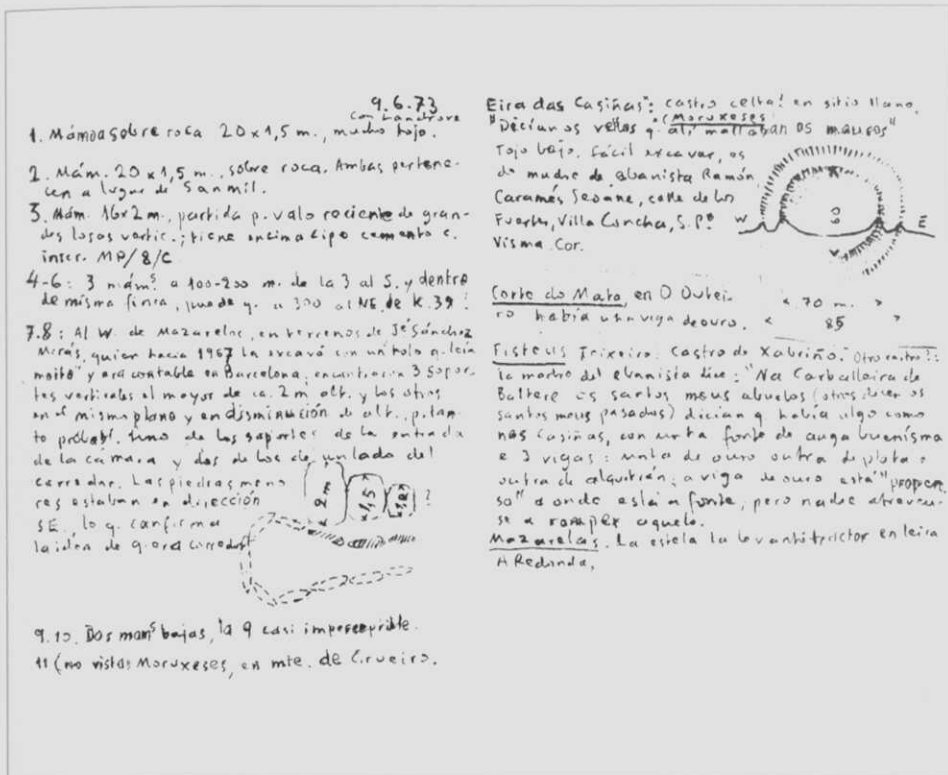 9.6.73
con Landrove
1. Mámoa sobre roca 20x1,5 m., mucho tojo.
2. Mám. 20x1,5 m., sobre roca. Ambas pertene-
cen a lugar de Sanmil.
3. Mám. 16x2 m., partida p. valo rociente de gran-
des losas vertic.; tiene encima cipo cemento c.
inscr. MP/8/C
4-6: 3 mám.s a 100-200 m. de la 3 al S. y dentro
de misma finca, puede q. a 300 al NE. de K. 39?
7.8: Al W. de Mazarelas, en terrenos de Jé Sánchez
Merás, quien hacia 1967 la excavó con un tolo q. leía
moito" y era contable en Barcelona; encontraron 3 sopor-
tes verticales el mayor de ca. 2 m alt. y los otros
en el mismo plano y en disminución de alt., p. tan-
to probabl. uno de los soportes de la entrada
de la cámara y dos de los de un lado del
corredor. Las piedras meno
res estaban en dirección
SE, lo q. confirma
la idea de q. era corredor
2 m
1,5
?
9.10. Dos mams bajas, la 9 casi imperceptible.
11 (no vista) Moruxeses, en mte. de Cirueiro.
Eira das Casiñas": castro celta! en sitio llano.
(Moruxeses)
"Dicían os vellos q. alí mallaban os mouros"
Tojo bajo. fácil excavar, es
de madre de ebanista Ramón
Caramés Seoane, calle de los
Fuertes, Villa Concha, S. P.º
Visma. Cor.
W
60
E
Corte do Mato, en O Outei-
ro había unha viga de ouro.
< 70 m. >
< 85 >
Fisteus Teixeiro: Castro de Xabriño. Otro castro?:
la madre del ebanista dice: "Na Carballeira de
Baltere os santos meus abuelos (otros dicen os
santos meus pasados) dicían q. había algo como
nas Casiñas, con unha fonte de auga buenísma
e 3 vigas: unha de ouro outra de plata e
outra de alquitrán; a viga de ouro está "propen
so" a onde está a fonte, pero nadie atroveu-
se a romper aquelo.
Mazarelas. La estela la levantó tractor en leira
A Redonda,